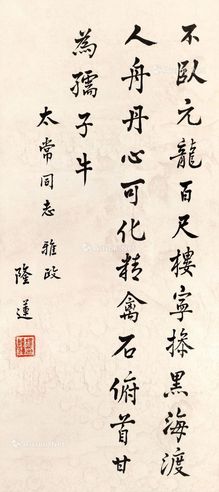 不臥元龍百尺樓寧操黑海渡
人舟丹心可化精禽石俯首甘
為孺子牛
太常同志 雅政
隆蓮